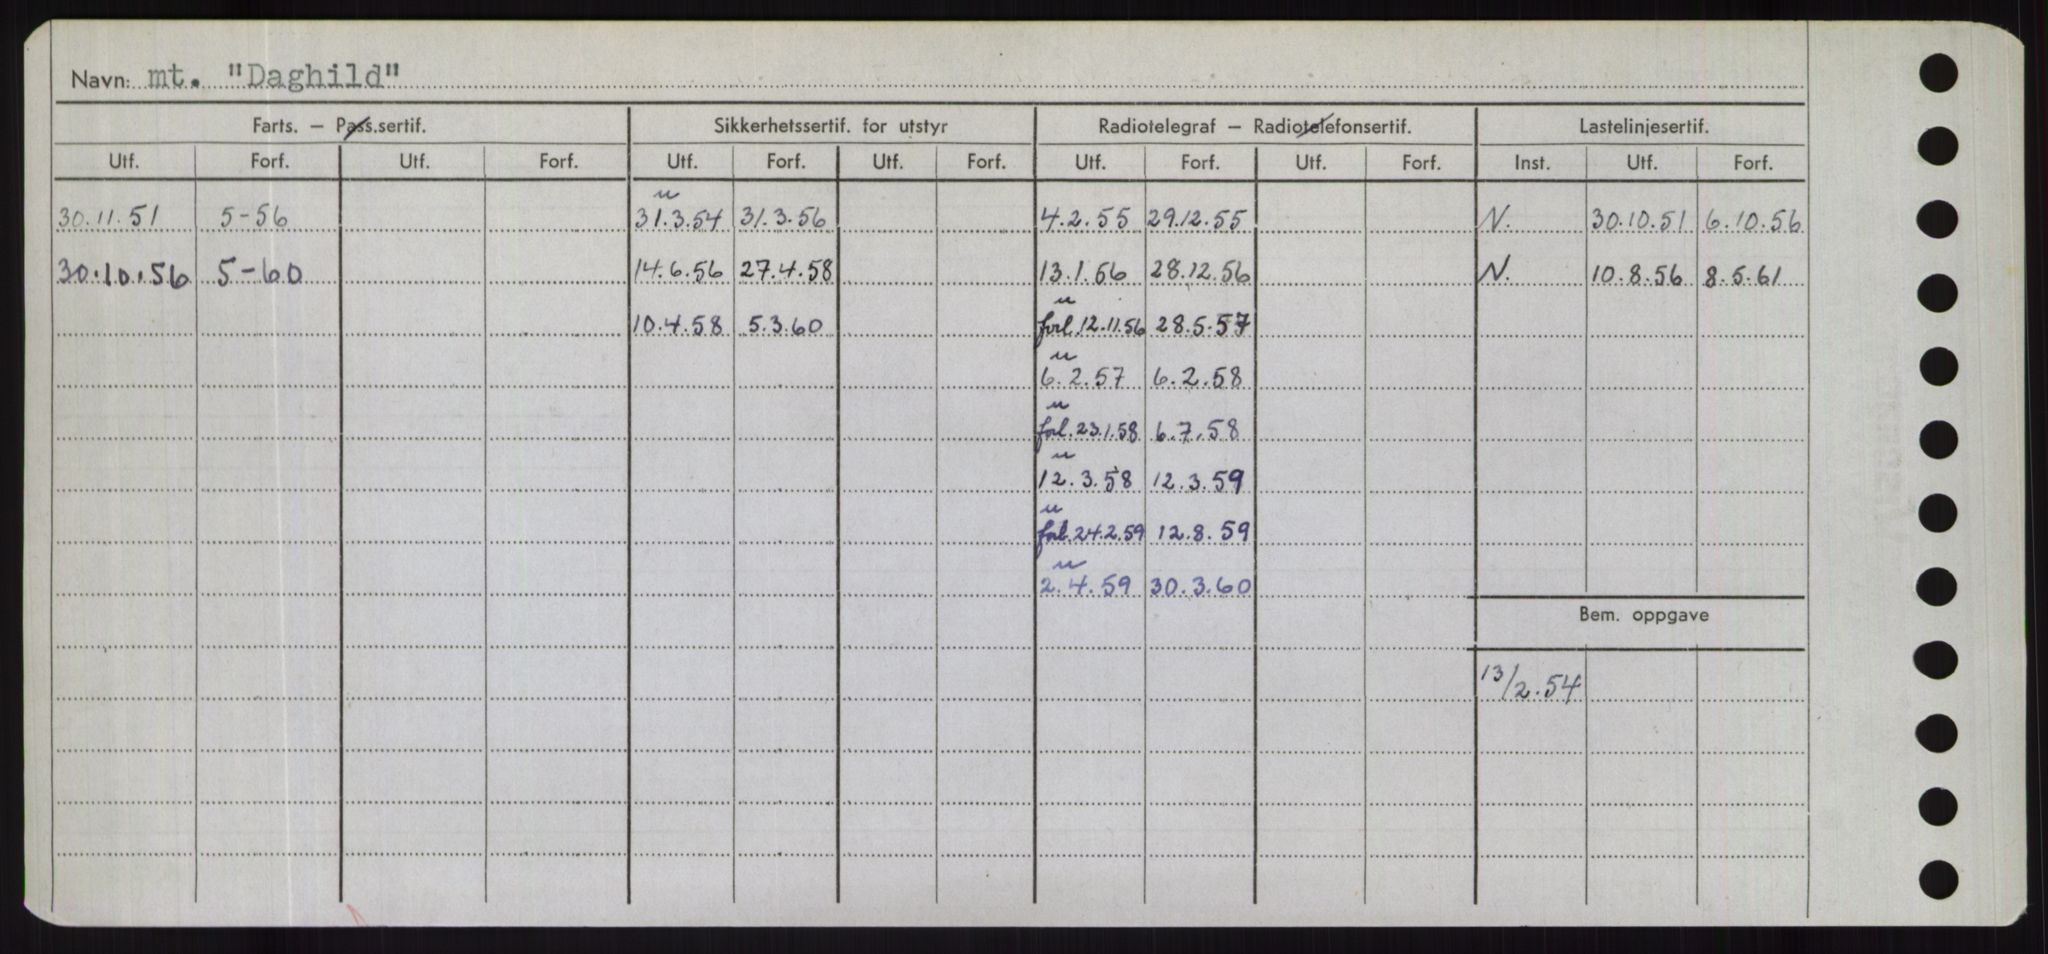 Navn: mt. "Daghild"
Farts. – Pass.sertif. Sikkerhetssertif. for utstyr Radiotelegraf – Radiotelefonsertif. Lastelinjesertif.
Utf. Forf. Utf. Forf. Utf. Forf. Utf. Forf. Utf. Forf. Utf. Forf. Inst. Utf. Forf.
u
30.11.51 5-56 31.3.54 31.3.56 4.2.55 29.12.55 N. 30.10.51 6.10.56
30.10.56 5-60 14.6.56 27.4.58 13.1.56 28.12.56 N. 10.8.56 8.5.61
u
10.4.58 5.3.60 forl. 12.11.56 28.5.57
u
6.2.57 6.2.58
u
forl. 23.1.58 6.7.58
u
12.3.58 12.3.59
u
forl. 24.2.59 12.8.59
u
2.4.59 30.3.60
Bem. oppgave
13/2.54